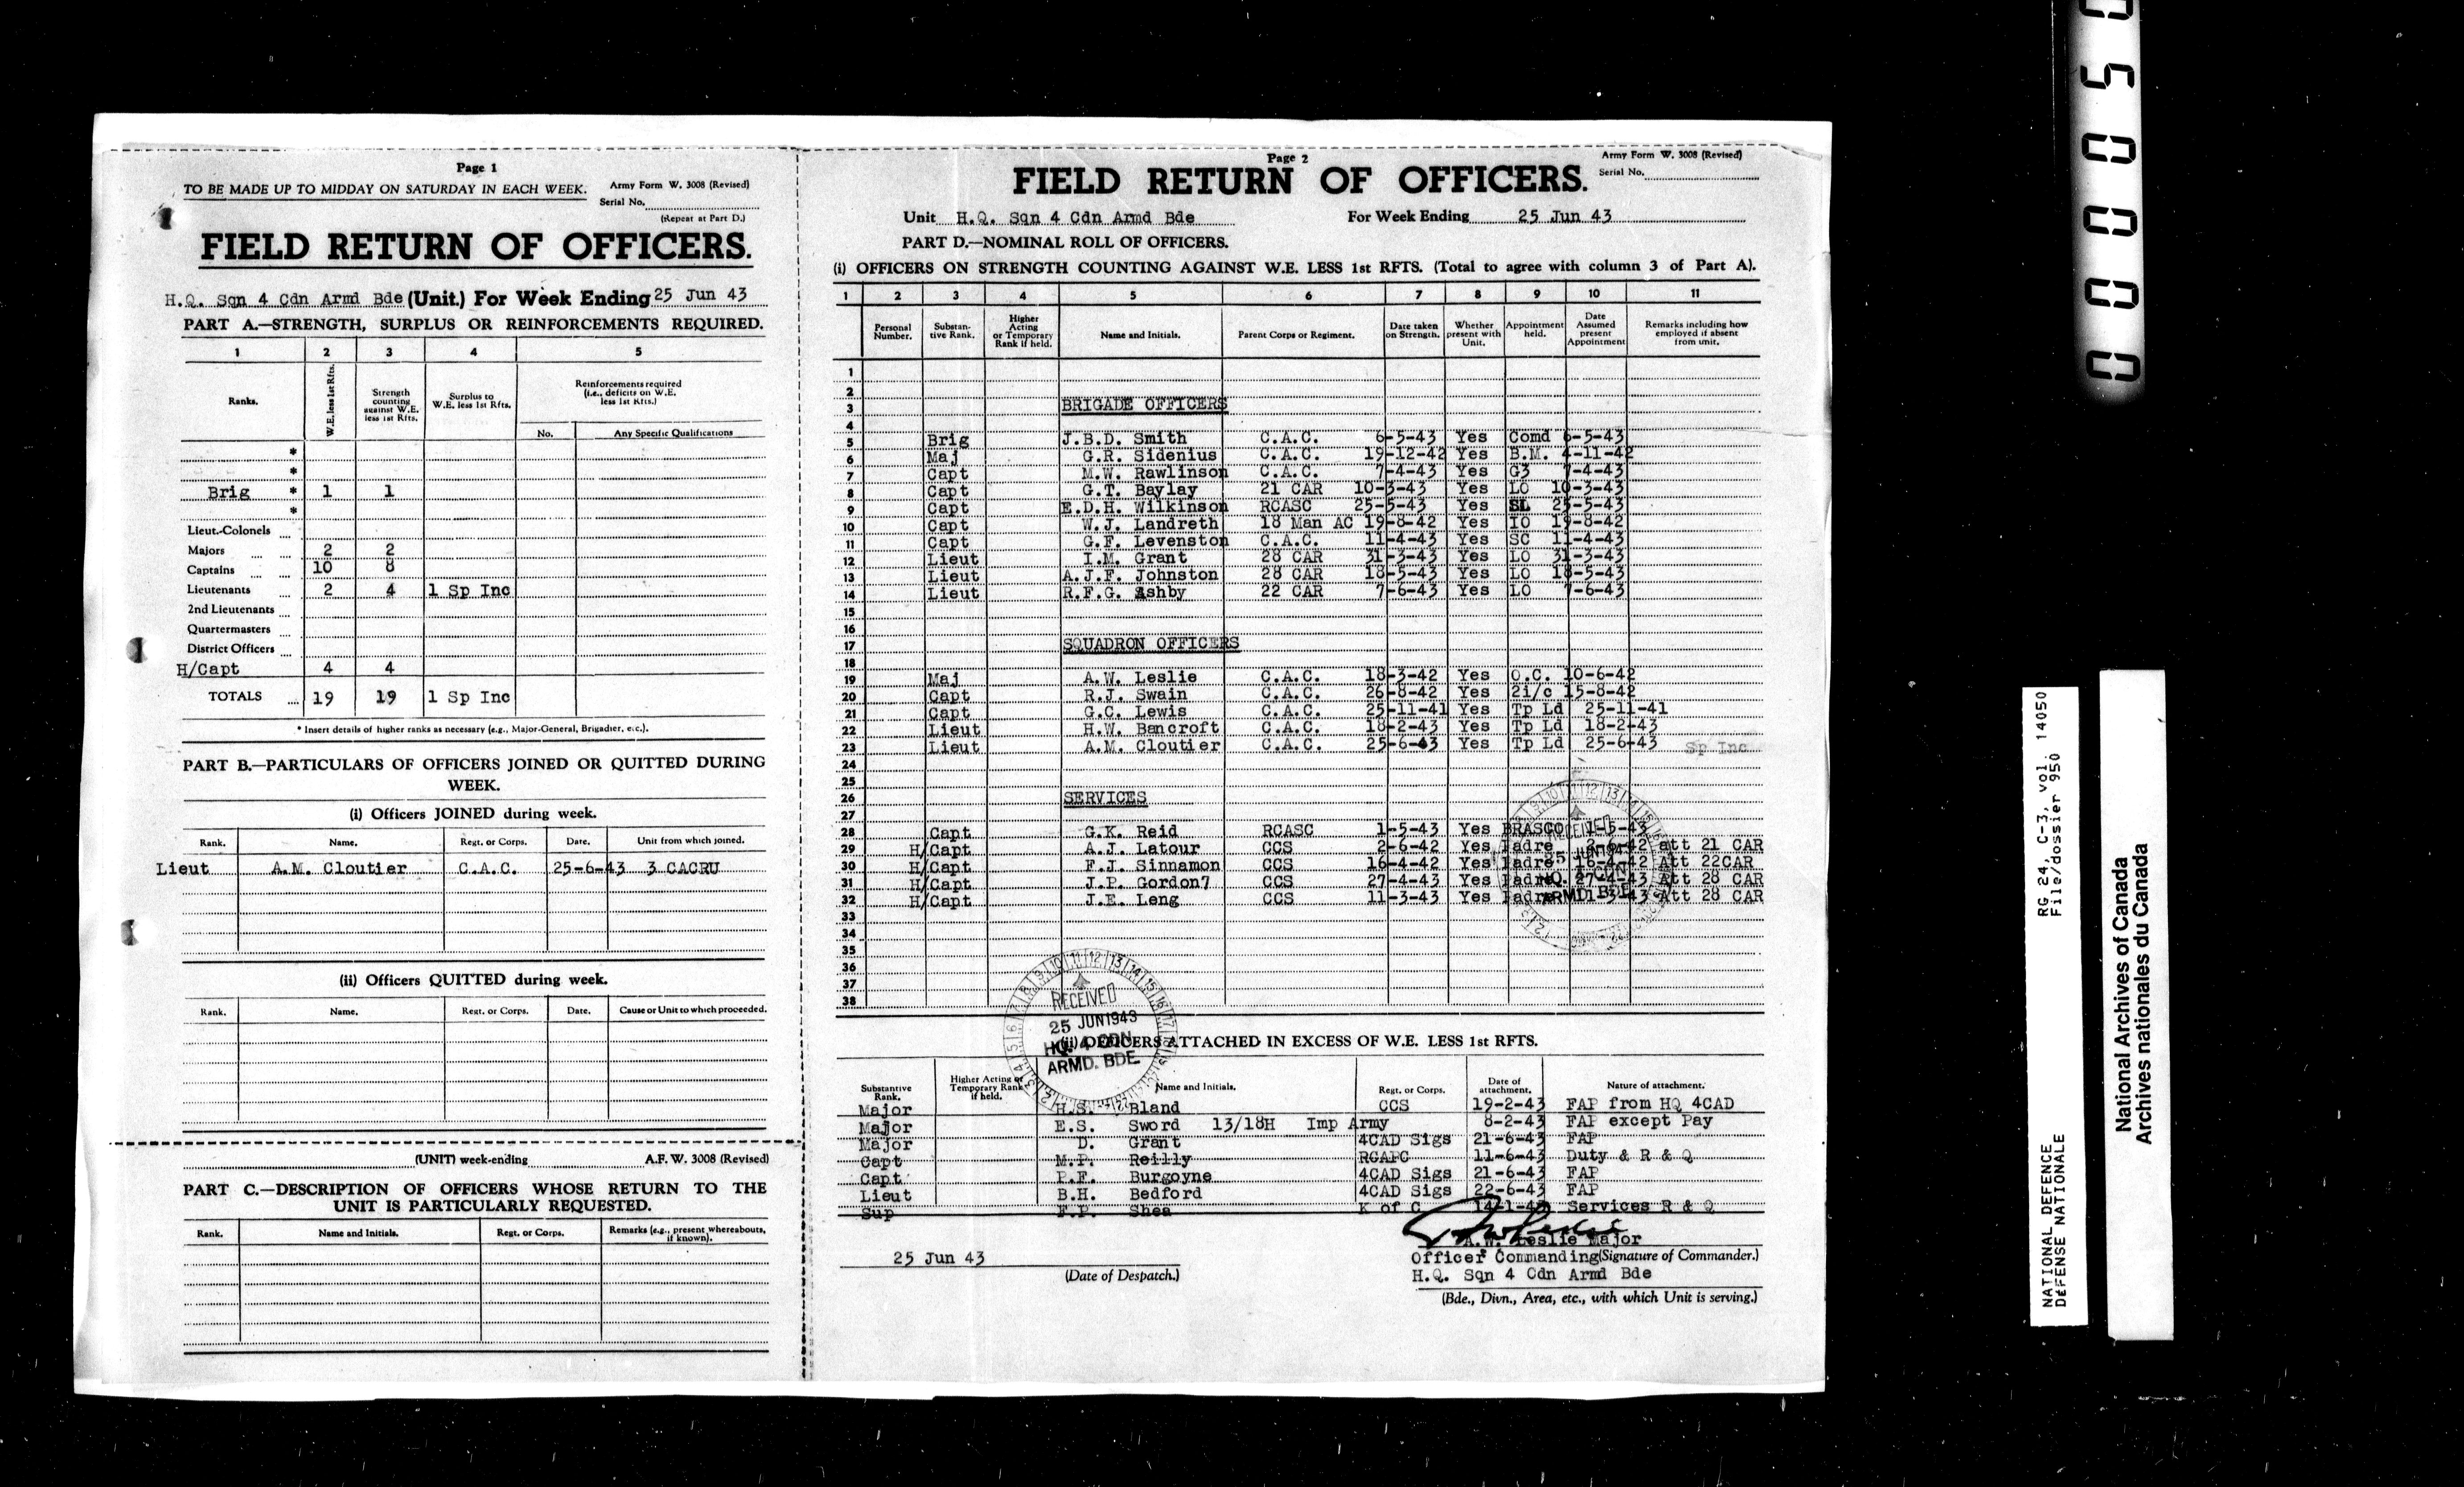 Page 1
TO BE MADE UP TO MIDDAY ON SATURDAY IN EACH WEEK.
Army Form W. 3008 (Revised)
Serial No.
(Repeat at Part D.)
FIELD RETURN OF OFFICERS.
H.Q. Sqn 4 Cdn Armd Bde (Unit.) For Week Ending 25 Jun 43
PART A.—STRENGTH, SURPLUS OR REINFORCEMENTS REQUIRED.
1 2 3 4 5
Ranks.
W.E. less 1st Rfts.
Strength counting against W.E. less 1st Rfts.
Surplus to W.E. less 1st Rfts.
Reinforcements required (i.e., deficits on W.E. less 1st Rfts.)
No. Any Specific Qualifications
*
*
Brig * 1 1
*
Lieut.-Colonels
Majors 2 2
Captains 10 8
Lieutenants 2 4 1 Sp Inc
2nd Lieutenants
Quartermasters
District Officers
H/Capt 4 4
TOTALS 19 19 1 Sp Inc
* Insert details of higher ranks as necessary (e.g., Major-General, Brigadier, e.c.).
PART B.—PARTICULARS OF OFFICERS JOINED OR QUITTED DURING
WEEK.
(i) Officers JOINED during week.
Rank. Name. Regt. or Corps. Date. Unit from which joined.
Lieut A.M. Cloutier C.A.C. 25-6-43 3 CACRU
(ii) Officers QUITTED during week.
Rank. Name. Regt. or Corps. Date. Cause or Unit to which proceeded.
(UNIT) week-ending A.F. W. 3008 (Revised)
PART C.—DESCRIPTION OF OFFICERS WHOSE RETURN TO THE
UNIT IS PARTICULARLY REQUESTED.
Rank. Name and Initials. Regt. or Corps. Remarks (e.g., present whereabouts, if known).
Page 2
Army Form W. 3008 (Revised)
Serial No.
FIELD RETURN OF OFFICERS.
Unit H.Q. Sqn 4 Cdn Armd Bde For Week Ending 25 Jun 43
PART D.—NOMINAL ROLL OF OFFICERS.
(i) OFFICERS ON STRENGTH COUNTING AGAINST W.E. LESS 1st RFTS. (Total to agree with column 3 of Part A).
1 2 3 4 5 6 7 8 9 10 11
Personal Number.
Substantive Rank.
Higher Acting or Temporary Rank if held.
Name and Initials.
Parent Corps or Regiment.
Date taken on Strength.
Whether present with Unit.
Appointment held.
Date Assumed present Appointment
Remarks including how employed if absent from unit.
1
2
3 BRIGADE OFFICERS
4
5 Brig J.B.D. Smith C.A.C. 6-5-43 Yes Comd 6-5-43
6 Maj G.R. Sidenius C.A.C. 19-12-42 Yes B.M. 4-11-42
7 Capt M.W. Rawlinson C.A.C. 7-4-43 Yes G3 7-4-43
8 Capt G.T. Baylay 21 CAR 10-3-43 Yes LO 10-3-43
9 Capt E.D.H. Wilkinson RCASC 25-5-43 Yes SL 25-5-43
10 Capt W.J. Landreth 18 Man AC 19-8-42 Yes IO 19-8-42
11 Capt G.F. Levenston C.A.C. 11-4-43 Yes SC 11-4-43
12 Lieut I.M. Grant 28 CAR 31-3-43 Yes LO 31-3-43
13 Lieut A.J.F. Johnston 28 CAR 18-5-43 Yes LO 18-5-43
14 Lieut R.F.G. Ashby 22 CAR 7-6-43 Yes LO 7-6-43
15
16
17 SQUADRON OFFICERS
18
19 Maj A.W. Leslie C.A.C. 18-3-42 Yes O.C. 10-6-42
20 Capt R.J. Swain C.A.C. 26-8-42 Yes 2i/c 15-8-42
21 Capt G.C. Lewis C.A.C. 25-11-41 Yes Tp Ld 25-11-41
22 Lieut H.W. Bancroft C.A.C. 18-2-43 Yes Tp Ld 18-2-43
23 Lieut A.M. Cloutier C.A.C. 25-6-43 Yes Tp Ld 25-6-43 Sp Inc
24
25
26 SERVICES
27
28 Capt G.K. Reid RCASC 1-5-43 Yes BRASCO 1-5-43
29 H/Capt A.J. Latour CCS 2-6-42 Yes Padre 2-6-42 att 21 CAR
30 H/Capt F.J. Sinnamon CCS 16-4-42 Yes Padre 16-4-42 Att 22CAR
31 H/Capt J.P. Gordon7 CCS 27-4-43 Yes Padre 27-4-43 Att 28 CAR
32 H/Capt J.E. Leng CCS 11-3-43 Yes Padre 11-3-43 Att 28 CAR
33
34
35
36
37
38
RECEIVED
25 JUN 1943
HQ. 4 CDN
ARMD. BDE
(ii) OFFICERS ATTACHED IN EXCESS OF W.E. LESS 1st RFTS.
Substantive Rank.
Higher Acting or Temporary Rank if held.
Name and Initials.
Regt. or Corps.
Date of attachment.
Nature of attachment.
Major H.S. Bland CCS 19-2-43 FAP from HQ 4CAD
Major E.S. Sword 13/18H Imp Army 8-2-43 FAP except Pay
Major D. Grant 4CAD Sigs 21-6-43 FAP
Capt M.P. Reilly RCAPC 11-6-43 Duty & R & Q
Capt P.F. Burgoyne 4CAD Sigs 21-6-43 FAP
Lieut B.H. Bedford 4CAD Sigs 22-6-43 FAP
Sup F.P. Shea K of C Services R & Q
A.W. Leslie Major
25 Jun 43
(Date of Despatch.)
Officer Commanding (Signature of Commander.)
H.Q. Sqn 4 Cdn Armd Bde
(Bde., Divn., Area, etc., with which Unit is serving.)
NATIONAL DEFENCE RG 24, C-3, vol. 14050
DÉFENSE NATIONALE File/dossier 950
National Archives of Canada
Archives nationales du Canada